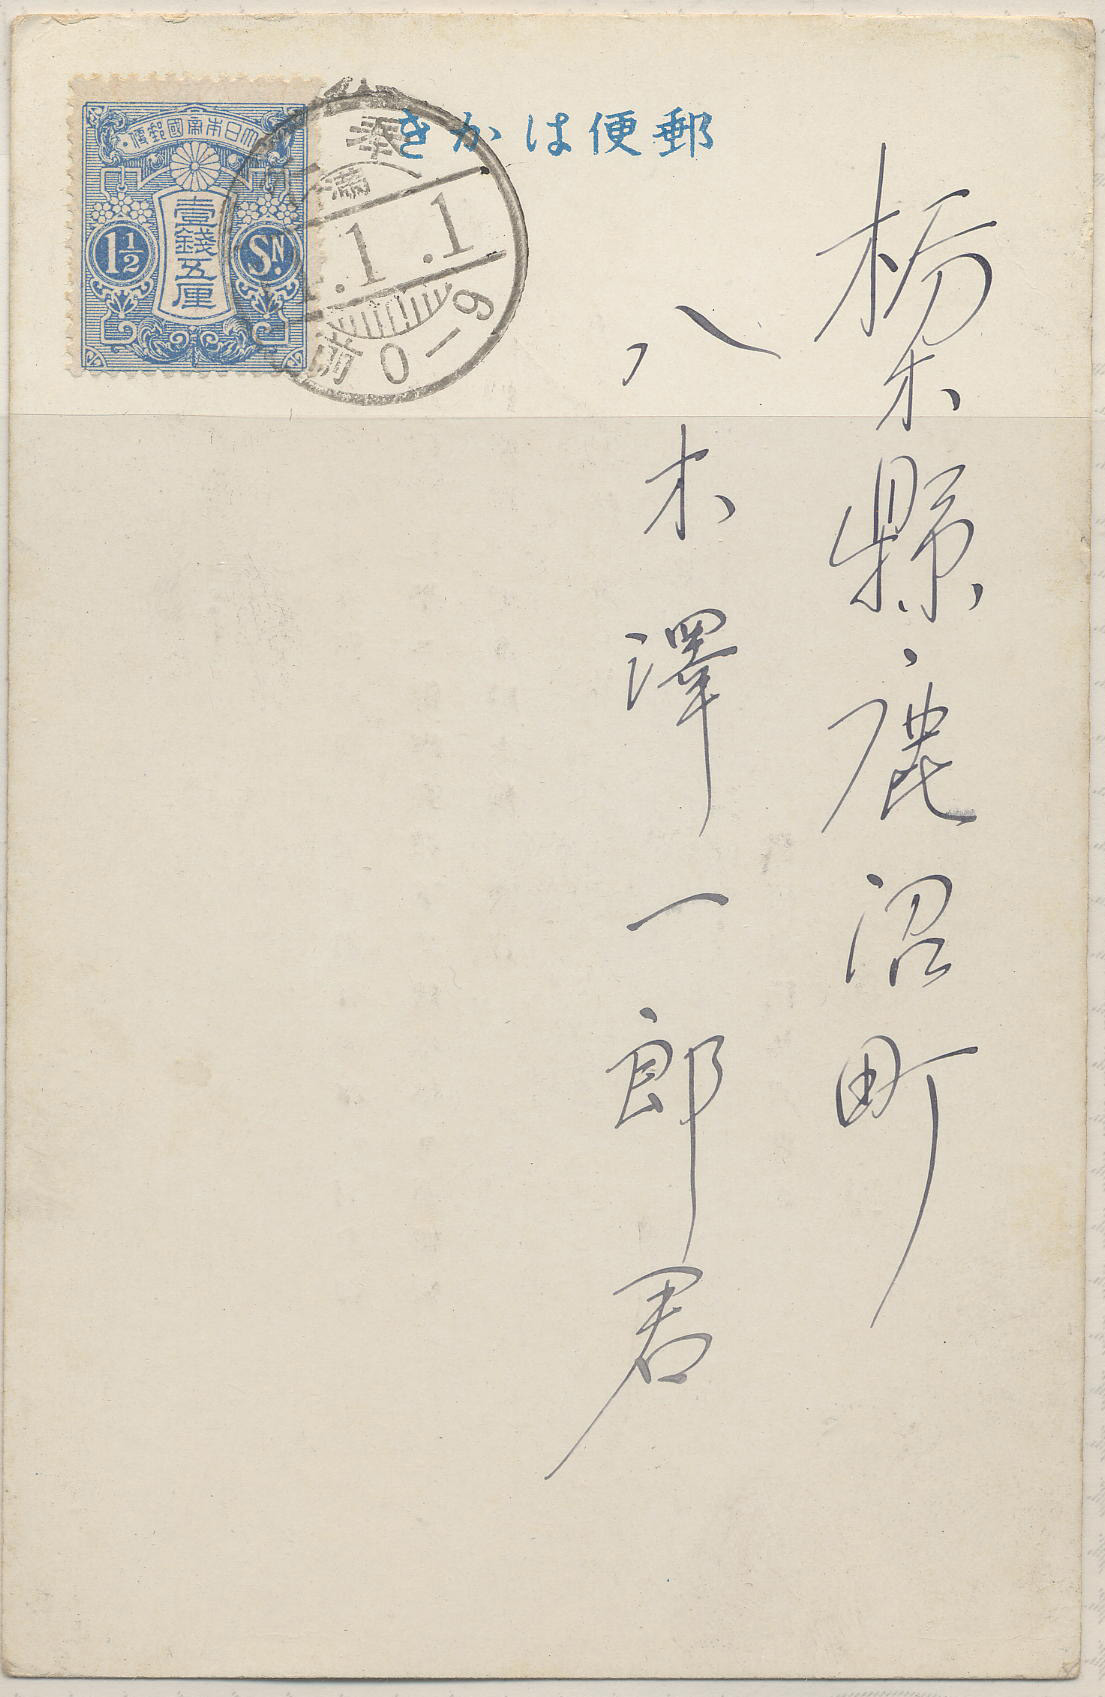 きかは便郵
便郵國帝本日大
壹錢五厘
1½
SN.
奉
満
.1.1
前0-9
栃木縣鹿沼町
八木澤一郎君